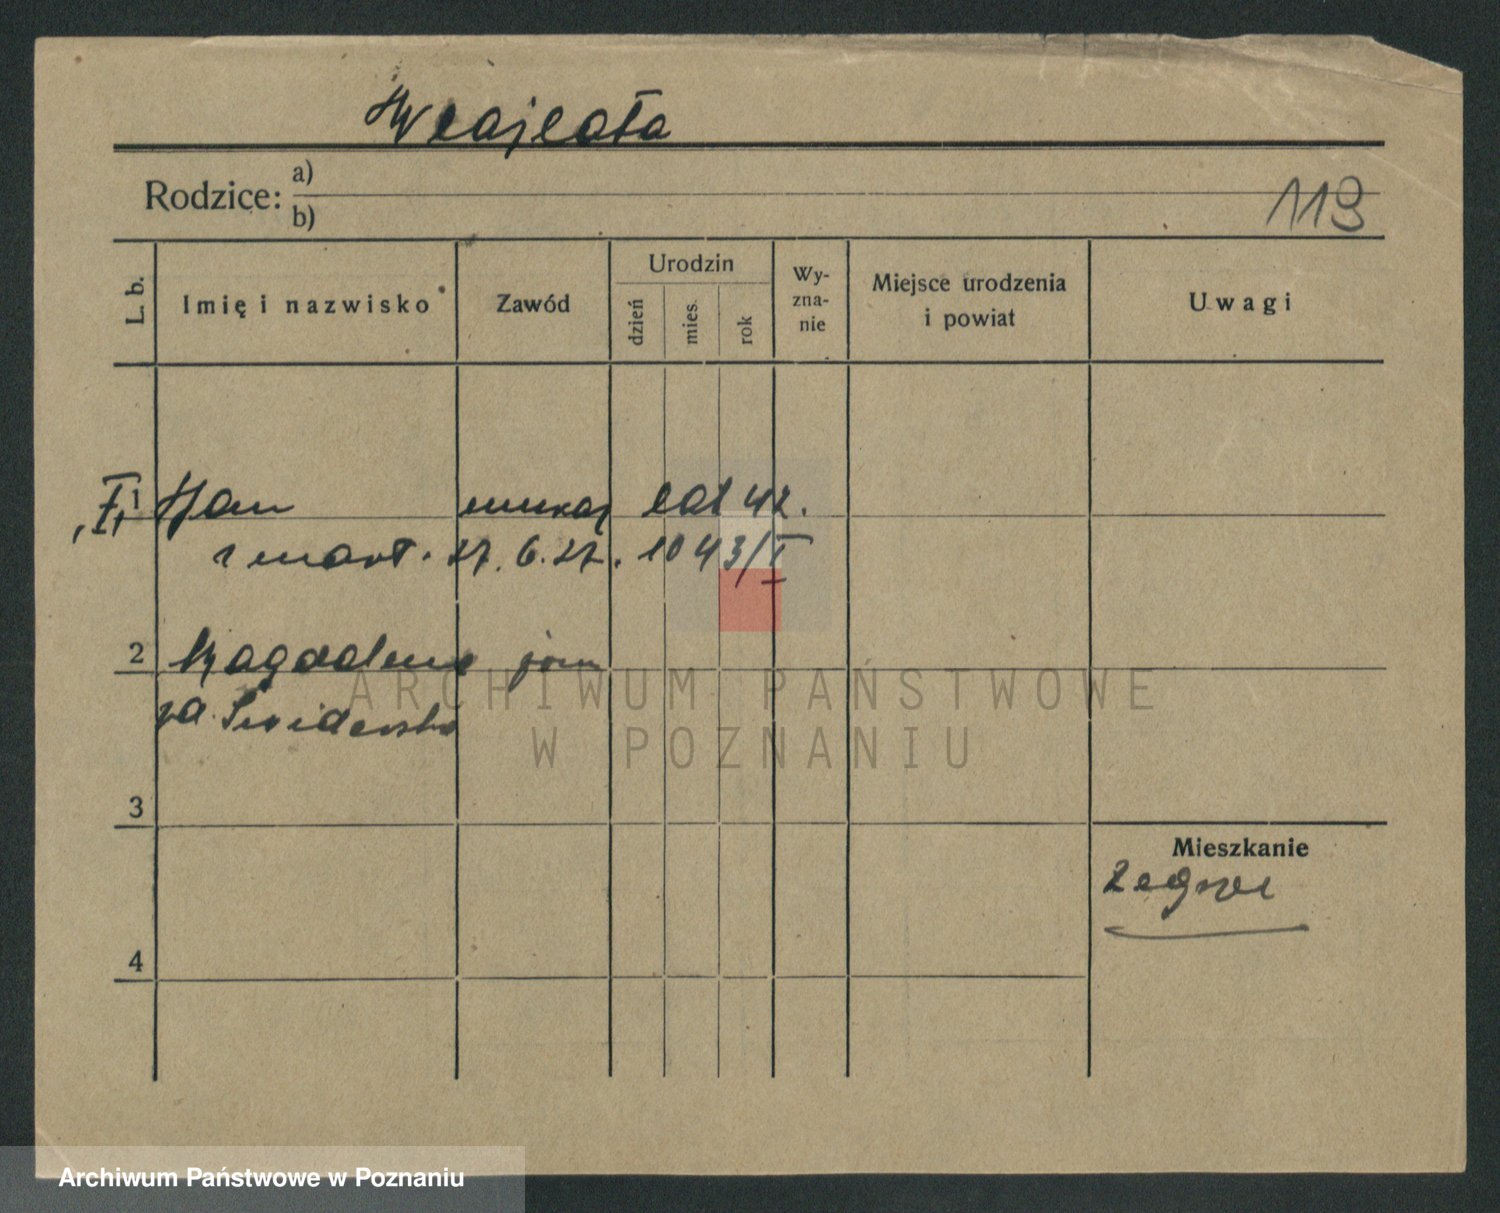 Rodzice: a)
b)
113
L. b.
Imię i nazwisko
Zawód
Urodzin
dzień
mies.
rok
Wy-
zna-
nie
Miejsce urodzenia
i powiat
Uwagi
1 Jan lat 42.
zmarł. 27. 6. 27. 1043/I
2 Magdalena
3
Mieszkanie
4
ARCHIWUM PAŃSTWOWE
W POZNANIU
Archiwum Państwowe w Poznaniu